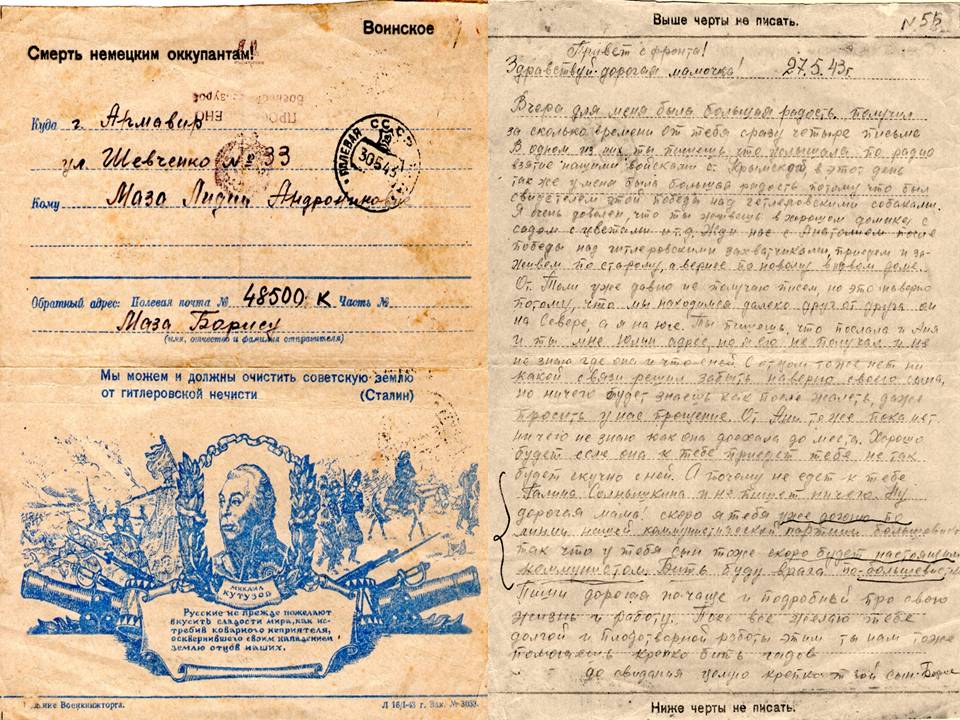 Воинское
Смерть немецким оккупантам!
Куда г. Армавир
ул. Шевченко № 33
Кому Маза Лидии Андрониковне
ПОЛЕВАЯ СССР
30 5 43
Обратный адрес: Полевая почта № 48500 К Часть №
Маза Борису
(имя, отчество и фамилия отправителя)
Мы можем и должны очистить советскую землю
от гитлеровской нечисти (Сталин)
МИХАИЛ
КУТУЗОВ
Русские не прежде пожелают
вкусить сладости мира, как ис-
требив коварного неприятеля,
осквернившего своим нападением
землю отцов наших.
Военкнижторга.
Л 16/I-43 г. Зак. № 3033.
Выше черты не писать.
N 55
Привет с фронта!
Здравствуй дорогая мамочка! 27.5.43г
Вчера для меня была большая радость получил
за сколько времени от тебя сразу четыре письма
В одном из них ты пишешь что услышала по радио
взятие нашими войсками с. Крымской, в этот день
так же у меня была большая радость потому что был
свидетелем этой победы над гетлеровскими собаками.
Я очень доволен, что ты живешь в хорошем домике, с
садом с цветами и т.д. Жди нас с Анатолием после
победы над гитлеровскими захватчиками, приедем и за-
живем по старому, а вернее по новому в новом доме.
От Толи уже давно не получаю писем, но это наверно
потому, что мы находимся далеко друг от друга он
на Севере, а я на юге. Ты пишешь, что послала и Аня
и ты мне Юлин адрес, но я его не получал и не
не знаю где она и что с ней. С отцом тоже нет ни
какой связи решил забыть наверно своего сына,
но ничего будет знаешь как после жалеть, даже
просить у нас прощение. От Ани тоже пока нет
ничего не знаю как она доехала до места. Хорошо
будет если она к тебе приедет тебе не так
будет скучно с ней. А почему не едет к тебе
Галина и не пишет ничего. Ну
дорогая мама! скоро я тебя уже
линии нашей коммунистической партии большевиков
так что у тебя сын тоже скоро будет настоящим
коммунистом. Бить буду врага по-большевистски
Пиши дорогая почаще и подробный про свою
жизнь и работу. Пока все желаю тебе
долгой и плодотворной работы этим ты нам тоже
помогаешь крепко бить гадов
до свидания целую крепко твой сын Борис
Ниже черты не писать.